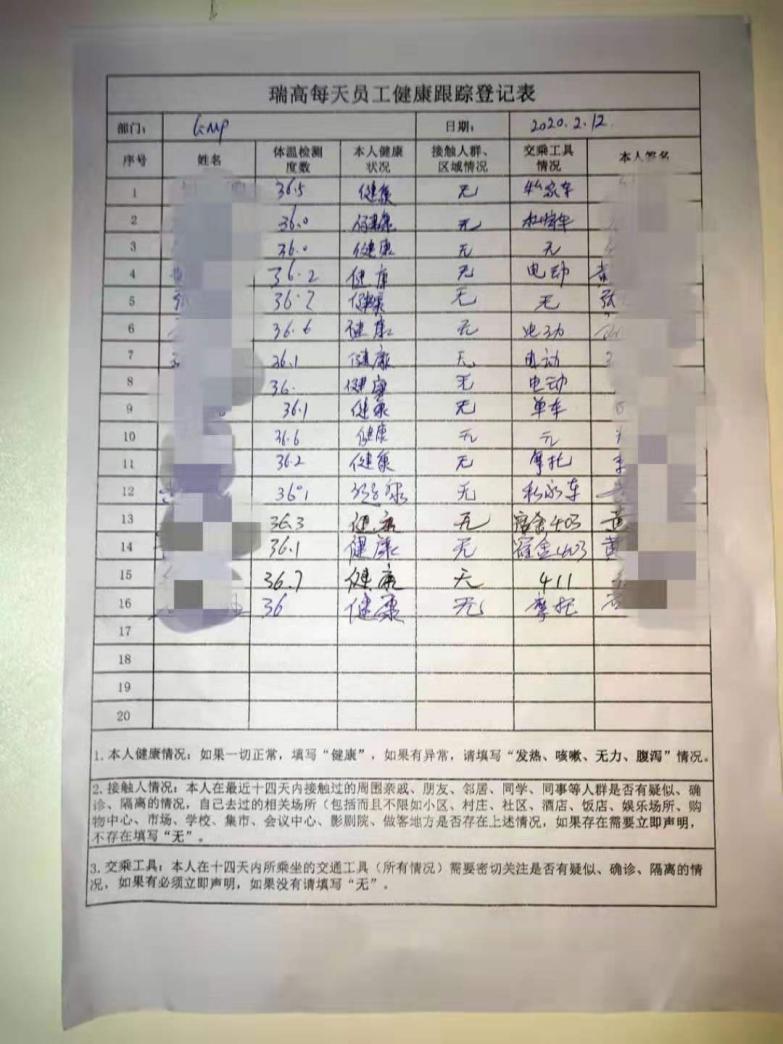 瑞高每天员工健康跟踪登记表
部门: GMP 日期: 2020.2.12
序号 姓名 体温检测度数 本人健康状况 接触人群、区域情况 交乘工具情况 本人签名
1 36.5 健康 无 私家车
2 36.0 健康 无
3 36.0 健康 无 无
4 黄 36.2 健康 无 电动 黄
5 张 36.2 健康 无 无 张
6 36.6 健康 无 电动
7 36.1 健康 无 电动
8 36. 健康 无 电动
9 36.1 健康 无 单车
10 36.6 健康 无 无
11 36.2 健康 无 摩托
12 36.1 健康 无 私家车
13 36.3 健康 无 宿舍403 黄
14 36.1 健康 无 宿舍403 黄
15 36.7 健康 无 411
16 36 健康 无 摩托
17
18
19
20
1. 本人健康情况: 如果一切正常, 填写“健康”, 如果有异常, 请填写“发热、咳嗽、无力、腹泻”情况。
2. 接触人情况: 本人在最近十四天内接触过的周围亲戚、朋友、邻居、同学、同事等人群是否有疑似、确
诊、隔离的情况, 自己去过的相关场所(包括而且不限如小区、村庄、社区、酒店、饭店、娱乐场所、购
物中心、市场、学校、集市、会议中心、影剧院、做客地方是否存在上述情况, 如果存在需要立即声明,
不存在填写“无”。
3. 交乘工具: 本人在十四天内所乘坐的交通工具(所有情况)需要密切关注是否有疑似、确诊、隔离的情
况, 如果有必须立即声明, 如果没有请填写“无”。